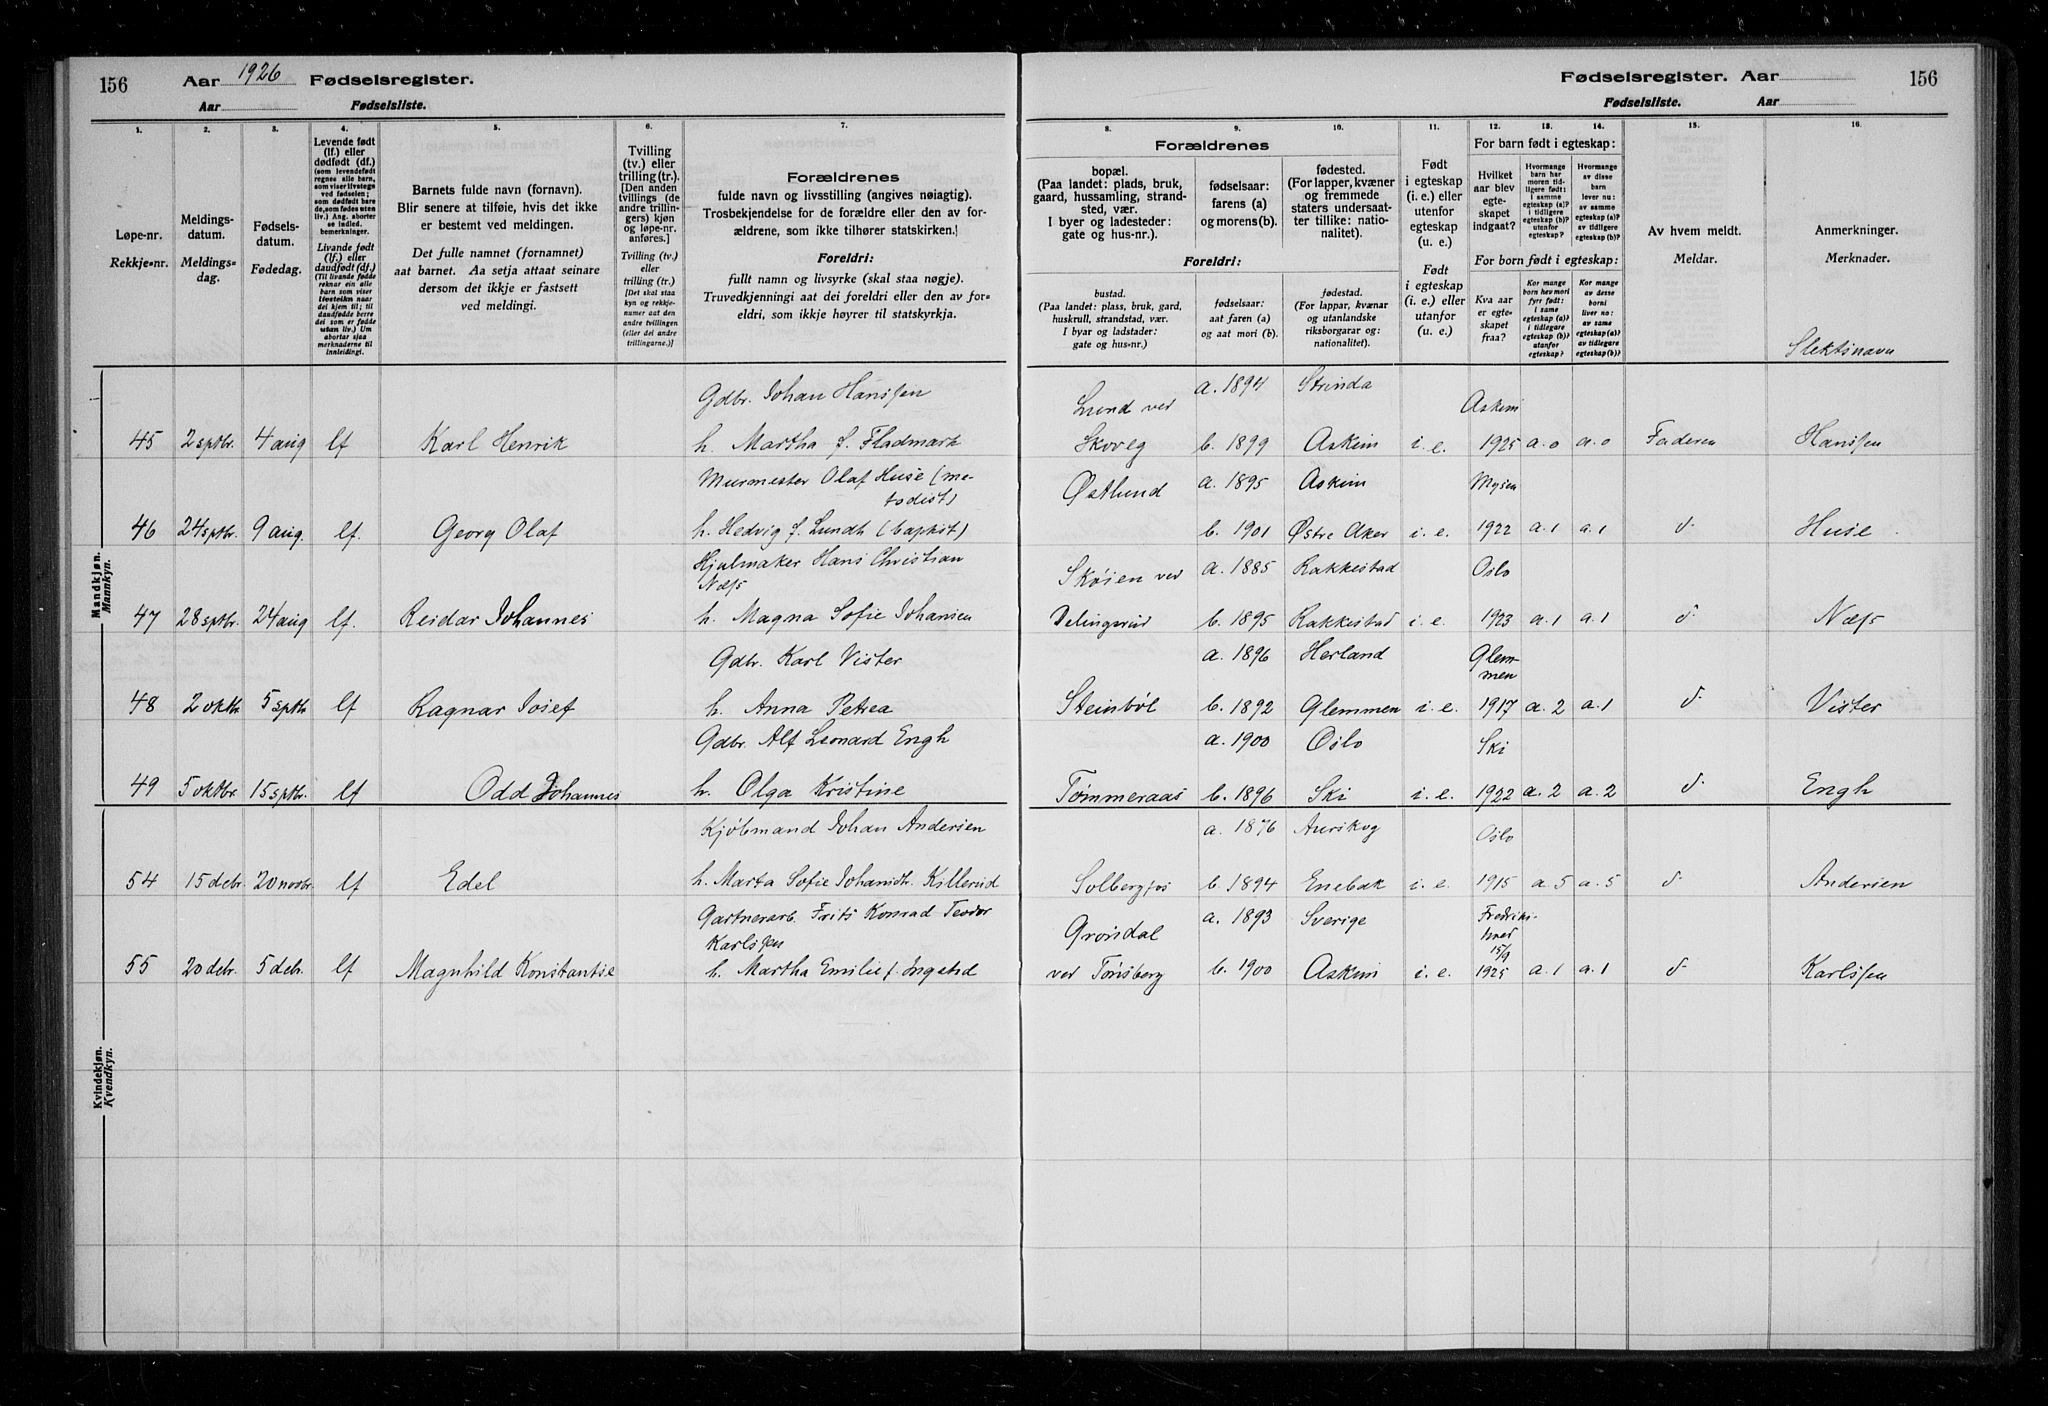 156 Aar 1926 Fødselsregister.
Aar Fødselsliste.
Fødselsregister. Aar 156
Fødselsliste. Aar
1. 2. 3. 4. 5. 6. 7. 8. 9. 10. 11. 12. 13. 14. 15. 16.
Løpe-nr.
Rekkje-nr.
Meldings-
datum.
Meldings-
dag.
Fødsels-
datum.
Fødedag.
Levende født
(lf.) eller
dødfødt (df.)
(som levendefødt
regnes alle barn,
som viser livstegn
ved fødselen;
som dødfødt bare
de, som fødes uten
liv.) Ang. aborter
se indled.
bemerkninger.
Livande født
(lf.) eller
daudfødt (df.)
(Til livande fødde
reknar ein alle
born som viser
livsteikn naar
dei kjem til; til
daudfødde berre
dei som er fødde
utan liv.) Um
abortar sjaa
merknaderne til
innleidingi.
Barnets fulde navn (fornavn).
Blir senere at tilføie, hvis det ikke
er bestemt ved meldingen.
Det fulle namnet (fornamnet)
aat barnet. Aa setja attaat seinare
dersom det ikkje er fastsett
ved meldingi.
Tvilling
(tv.) eller
trilling (tr.).
[Den anden
tvillings (de
andre trillin-
gers) kjøn
og løpe-nr.
anføres.]
Tvilling (tv.)
eller
trilling (tr.)
[Det skal staa
kyn og rekkje-
numer aat den
andre tvillingen
(eller dei andre
trillingarne.)]
Forældrenes
fulde navn og livsstilling (angives nøiagtig).
Trosbekjendelse for de forældre eller den av for-
ældrene, som ikke tilhører statskirken.
Foreldri:
fullt namn og livsyrke (skal staa nøgje).
Truvedkjenningi aat dei foreldri eller den av for-
eldri, som ikkje høyrer til statskyrkja.
Forældrenes
bopæl.
(Paa landet: plads, bruk,
gaard, hussamling, strand-
sted, vær.
I byer og ladesteder:
gate og hus-nr.).
fødselsaar:
farens (a)
og morens (b).
fødested.
(For lapper, kvæner
og fremmede
staters undersaat-
ter tillike: natio-
nalitet).
Foreldri:
bustad.
(Paa landet: plass, bruk, gard,
huskrull, strandstad, vær.
I byar og ladstader:
gate og hus-nr.)
fødselsaar:
aat faren (a)
og aat mori (b).
fødestad.
(For lappar, kvænar
og utanlandske
riksborgarar og:
nationalitet).
Født
i egteskap
(i. e.) eller
utenfor
egteskap
(u. e.)
Født
i egteskap
(i. e.) eller
utanfor
(u. e.)
For barn født i egteskap:
Hvilket
aar blev
egte-
skapet
indgaat?
Hvormange
barn har
moren tid-
ligere født:
i samme
egteskap (a)?
i tidligere
egteskap (b)?
utenfor
egteskap?
Hvormange
av disse
barn
lever nu:
av samme
egteskap (a)?
av tidligere
egteskap (b)?
For born født i egteskap:
Kva aar
er egte-
skapet
fraa?
Kor mange
born hev mori
fyrr født:
i same
egteskap (a)?
i tidlegare
egteskap (b)?
utanfor
egteskap?
Kor mange
av desse
borni
liver no:
av same
egteskap (a)?
av tidlegare
egteskap (b)?
Av hvem meldt.
Meldar.
Anmerkninger.
Merknader.
Slektsnavn
Mandkjøn.
Mannkyn.
Gdbr. Johan Hanssen a. 1894 Strinda
Lund ved Askim
45 2 sptbr. 4 aug lf Karl Henrik h. Martha f. Fladmark Skovlg b. 1899 Askim i. e. 1925 a. 0 a. 0 Faderen Hanssen
Murmester Olaf Huse (me-
todist) Østlund a. 1895 Askim Mysen
46 24 sptbr. 9 aug. lf. Georg Olaf h. Hedvig f. Lundh (baptist) b. 1901 Østre Aker i. e. 1922 a. 1 a. 1 d. Huse
Hjulmaker Hans Christian
Næss Skøien ved a. 1885 Rakkestad Oslo
47 28 sptbr. 24 aug lf. Reidar Johannes h. Magna Sofie Johansen Delingsrud b. 1895 Rakkestad i. e. 1923 a. 1 a. 1 d. Næss
Gdbr. Karl Vister a. 1896 Herland Glem-
men
48 2 oktbr 5 sptbr lf Ragnar Josef h. Anna Petrea Steinbøl b. 1892 Glemmen i. e. 1917 a. 2 a. 1 d. Vister
Gdbr. Alf Leonard Engh a. 1900 Oslo Ski
49 5 oktbr. 15 sptbr. lf Odd Johannes h. Olga Kristine Tømmeraas b. 1896 Ski i. e. 1922 a. 2 a. 2 d. Engh
Kvindekjøn.
Kvendkyn.
Kjøbmand Johan Andersen a. 1876 Aurskog Oslo
54 15 debr. 20 novbr. lf Edel h. Marta Sofie Johansdt. Killerud Solbergfos b. 1894 Enebak i. e. 1915 a. 5 a. 5 d. Andersen
Gartnerarb. Frits Konrad Teodor
Karlssen Grøndal a. 1893 Sverige Fredriks-
15/9
55 20 debr. 5 debr. lf Magnhild Konstantse h. Martha Emilie f. Ingstad ved Tønsberg b. 1900 Askim i. e. 1925 a. 1 a. 1 d. Karlssen